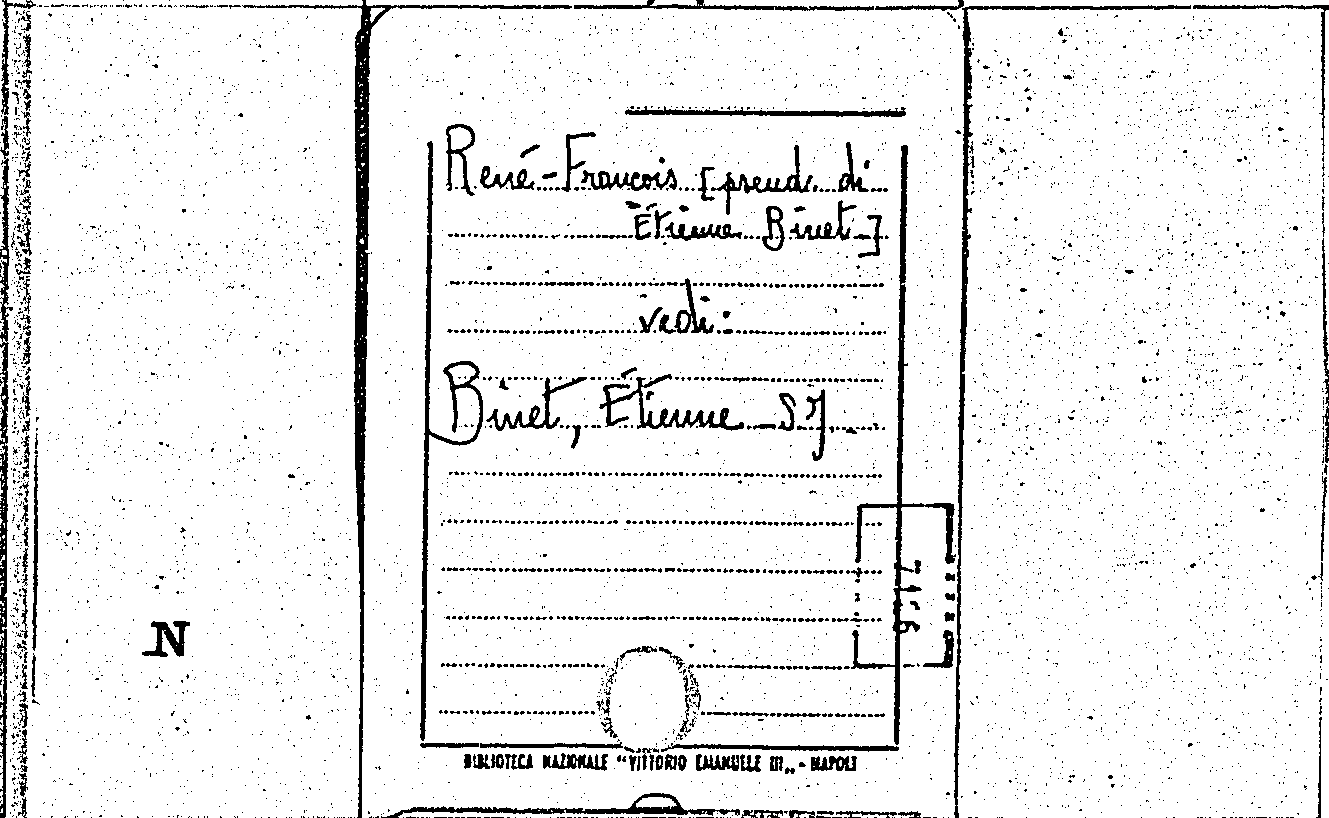 René-François [pseud. di
Étienne Binet]
vedi:
Binet, Étienne S.J.
N
BIBLIOTECA NAZIONALE "VITTORIO EMANUELE III„ - NAPOLI